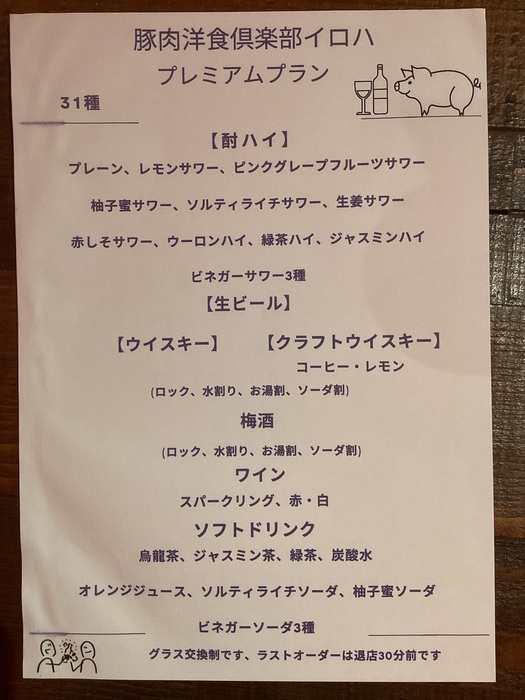 豚肉洋食倶楽部イロハ
プレミアムプラン
31種
【酎ハイ】
プレーン、レモンサワー、ピンクグレープフルーツサワー
柚子蜜サワー、ソルティライチサワー、生姜サワー
赤しそサワー、ウーロンハイ、緑茶ハイ、ジャスミンハイ
ビネガーサワー3種
【生ビール】
【ウイスキー】 【クラフトウイスキー】
コーヒー・レモン
(ロック、水割り、お湯割、ソーダ割)
梅酒
(ロック、水割り、お湯割、ソーダ割)
ワイン
スパークリング、赤・白
ソフトドリンク
烏龍茶、ジャスミン茶、緑茶、炭酸水
オレンジジュース、ソルティライチソーダ、柚子蜜ソーダ
ビネガーソーダ3種
グラス交換制です、ラストオーダーは退店30分前です